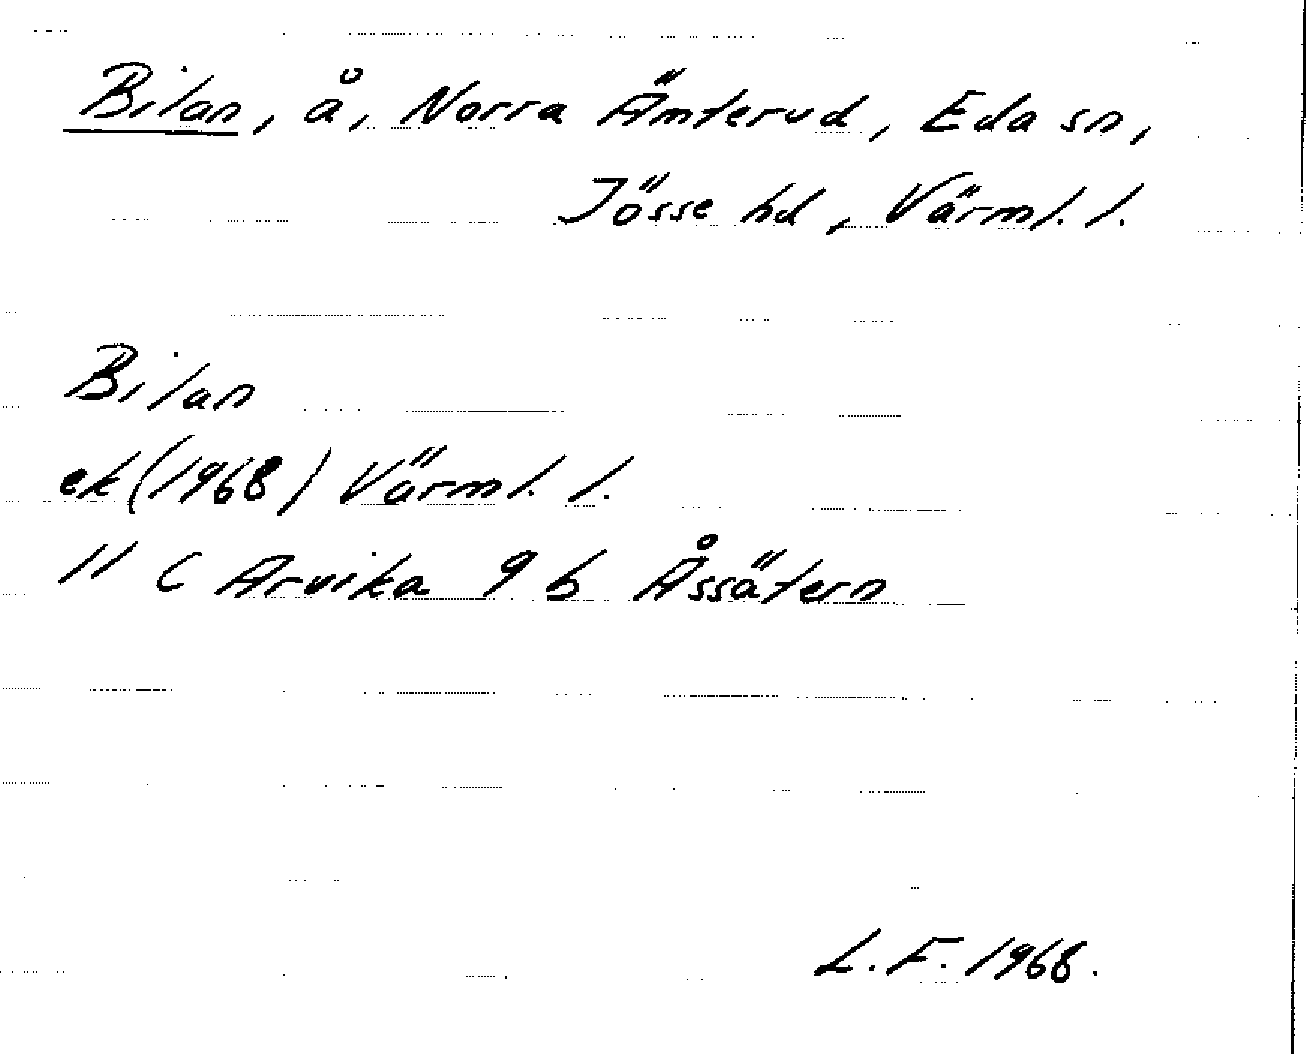 Bilan, å, Norra Ämterud, Eda sn,
Jösse hd, Värml. l.
Bilan
ek (1968) Värml. l.
11 C Arvika 9 b Åssätern
L. F. 1968.